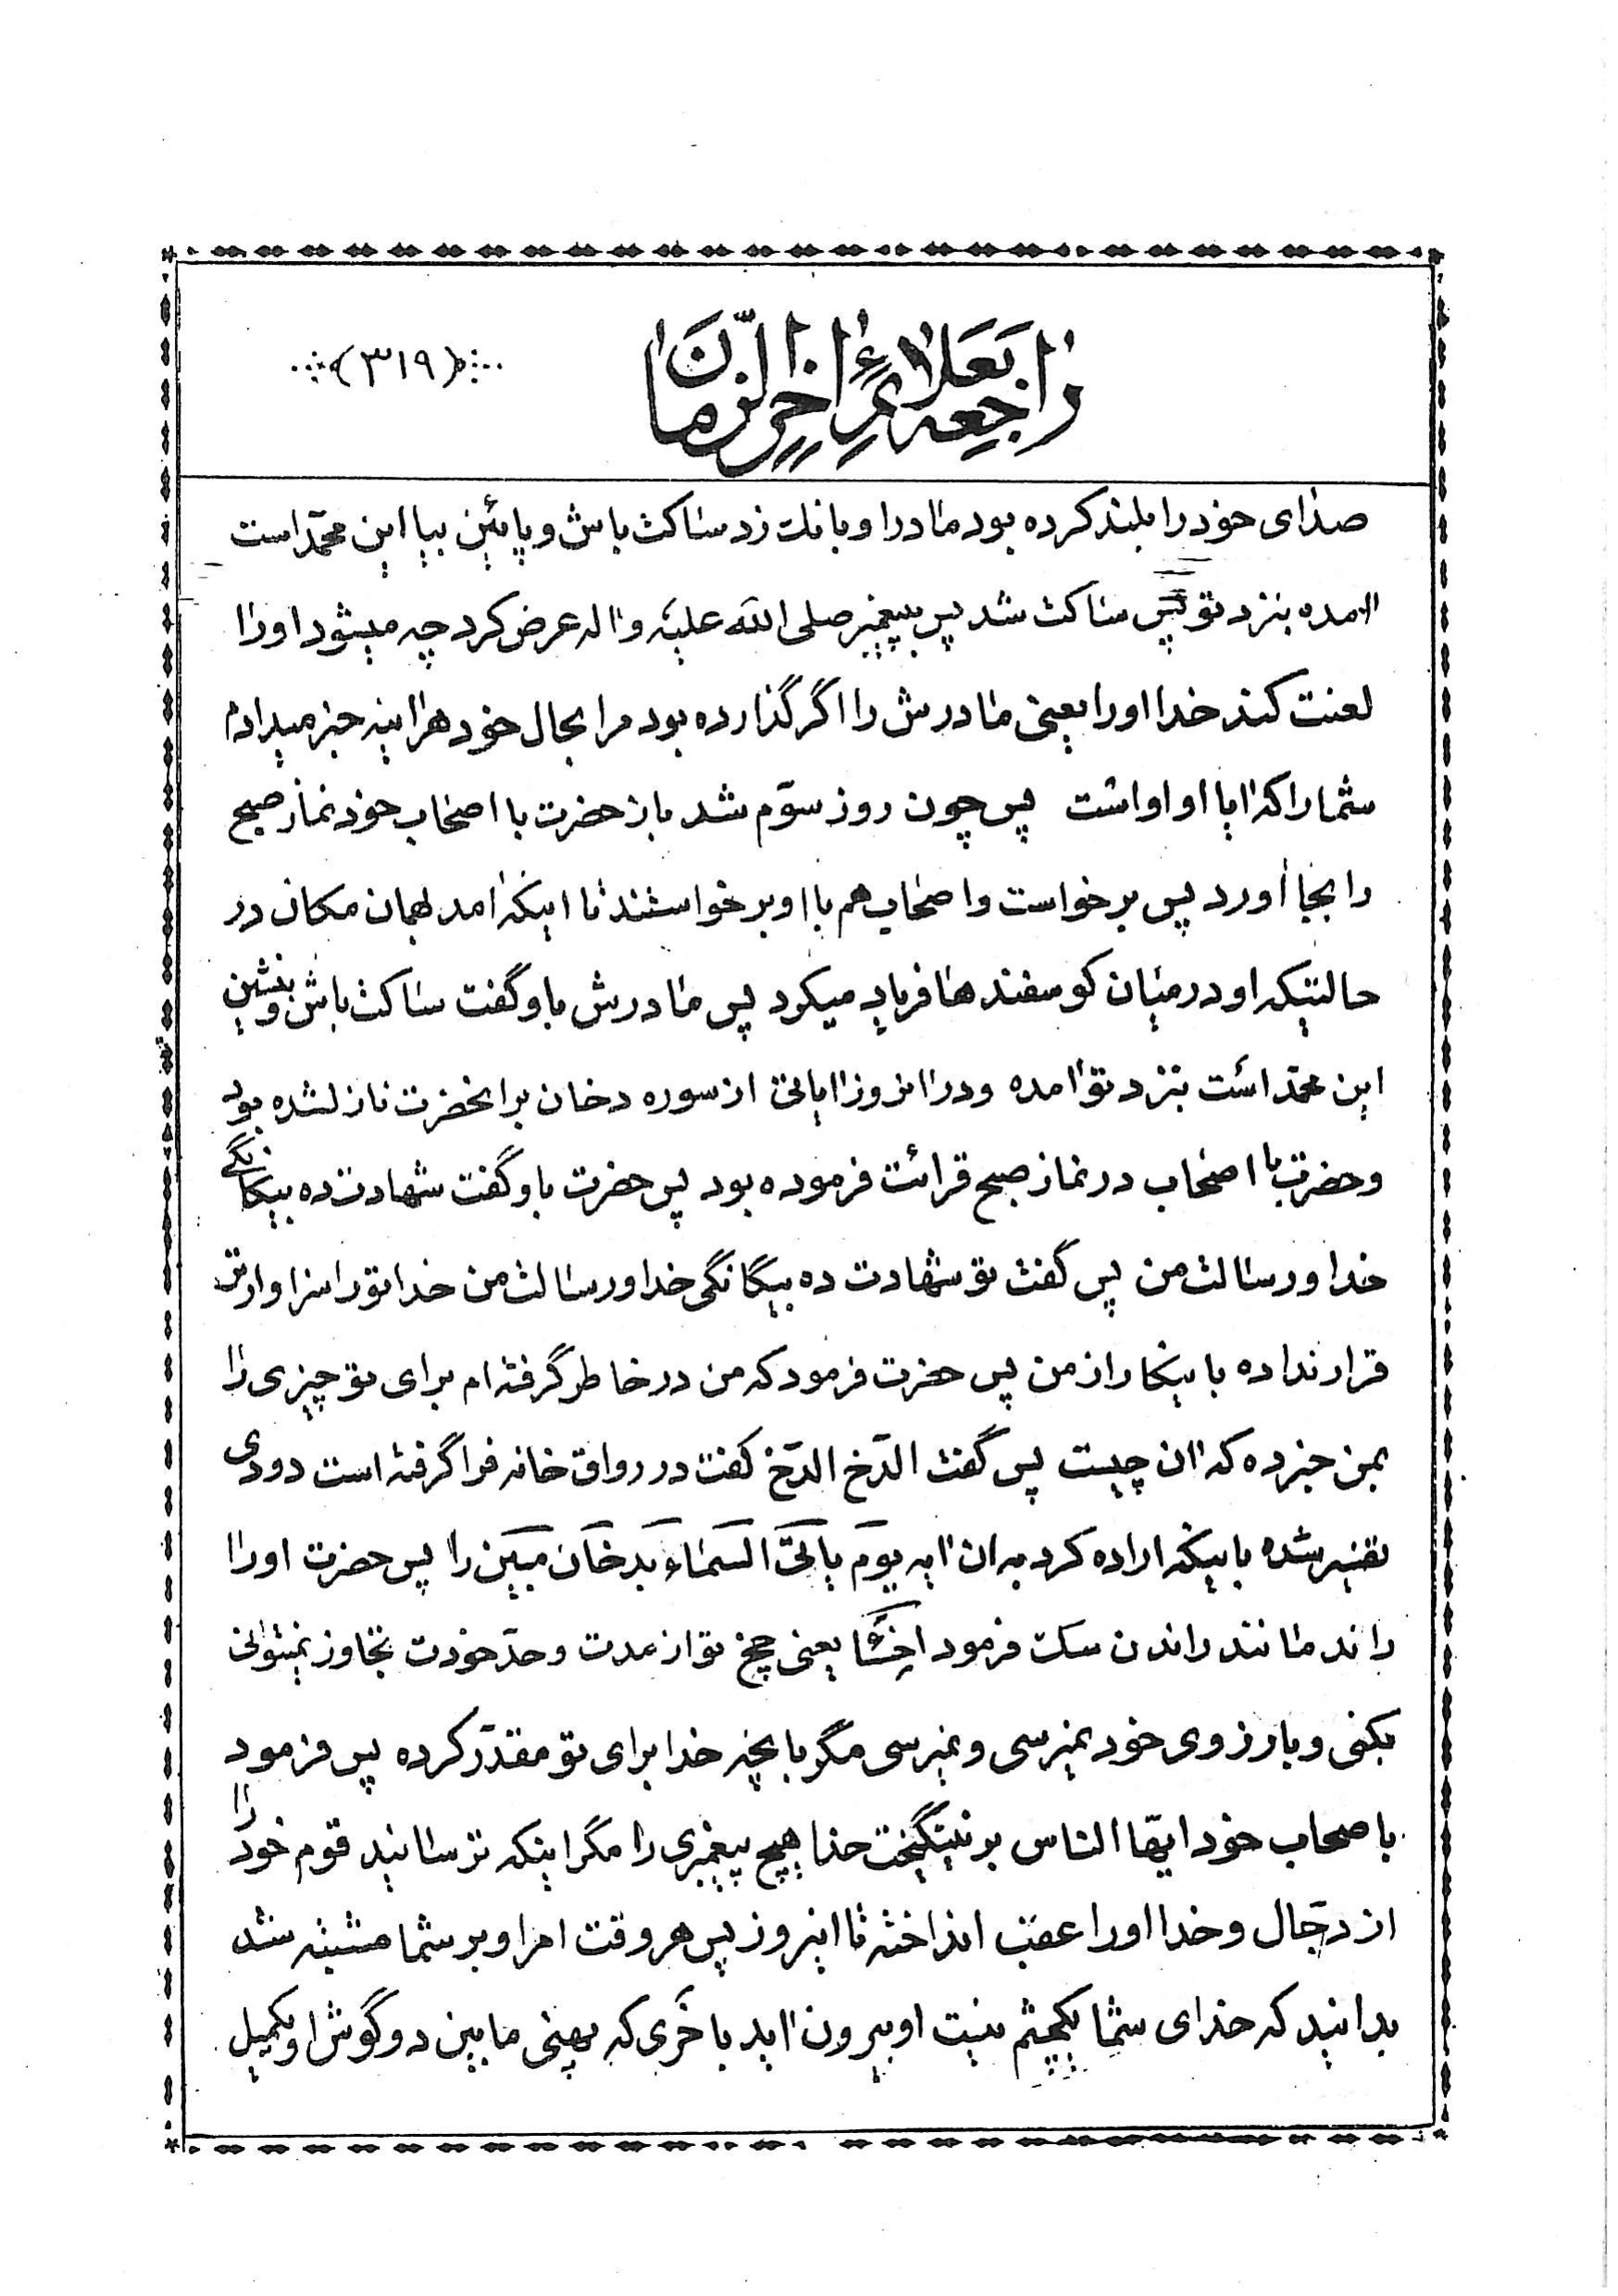 راجعه بعلائم اخر الزمان
(۳۱۹)
صدای خود را بلند کرده بود مادر او بانك زد ساکت باش و پایئن بیا این محمّد است
امده بنزد تو پس ساکت شد پس پیغمبر صلی الله علیه واله عرض کرد چه میشود او را
لعنت کند خدا او را یعنی مادرش را اگر گذارده بود مرا بحال خود هراینه خبر میدادم
شما را که ایا او اواست پس چون روز سوّم شد باز حضرت با اصحاب خود نماز صبح
را بجا آورد پس برخواست و اصحاب هم با او برخواستند تا اینکه امد بهمان مکان در
حالتیکه او در میان کوسفندها فریاد میکرد پس مادرش باو گفت ساکت باش و بنشین
این محمّد است بنزد تو امده و در انروز ایاتی از سوره دخان برانحضرت نازلشده بود
و حضرت با اصحاب در نماز صبح قرائت فرموده بود پس حضرت باو گفت شهادت ده بیکانگی
خدا و رسالت من پس گفت تو شهادت ده بیگانگی خدا و رسالت من خدا تو را سزاوارتر
قرار نداده باینکار از من پس حضرت فرمود که من در خاطر گرفته ام برای تو چیزی را
بمن خبر ده که ان چیست پس گفت الدّخ الدّخ کفت در رواق خانه فرا گرفته است دودی
تفسیر شده باینکه اراده کرد به ان ایه یوم یاتی السّماء بدخان مبین را پس حضرت او را
راند مانند راندن سك فرمود اخسأ یعنی چخ تو از مدت و حدّ خودت تجاوز نمیتوانی
بکنی و بارزوی خود نمیرسی و نمیرسی مگر بانچه خدا برای تو مقدّر کرده پس فرمود
باصحاب خود ایها الناس برنینگیخت خدا هیچ پیغمبری را مگر اینکه ترسانید قوم خود را
از دجّال و خدا او را عقب انداخته تا امروز پس هر وقت امر او بر شما مشتبه شد
بدانید که خدای شما یکچشم نیست او بیرون اید با خری که پهنی مابین دو گوش او یکمیل